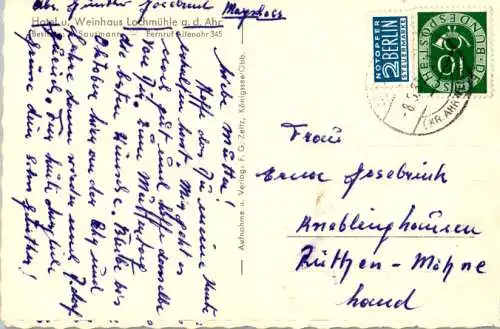 Abs. Günter Josebrink Mayschoss
Hotel u. Weinhaus Lochmühle a. d. Ahr
Besitzer: Sautmann — Fernruf Altenahr 345
Liebe Mutter!
Hoffe, daß Du meine Karte
erhalten hast. Mir geht es
noch gut und hoffe dasselbe
von Dir. Zum Muttertag
die besten Wünsche. Bleibe bis
Oktober hier an der Ahr und
dann wieder nach
für heute
grüßt Dein Sohn
Günter!
Aufnahme u. Verlag F. G. Zeitz, Königssee/Obb.
NOTOPFER
2 BERLIN
STEUERMARKE
DEUTSCHE BUNDESPOST
10
-8.5.
(KR. AHR
Frau
Erna Josebrink
Knoblinghausen
Rüthen-Möhne
Land